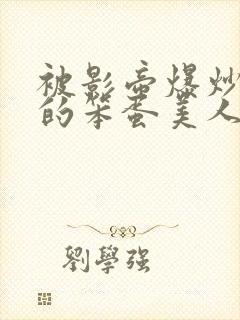 被影帝爆炒
的笨蛋美人
劉學强